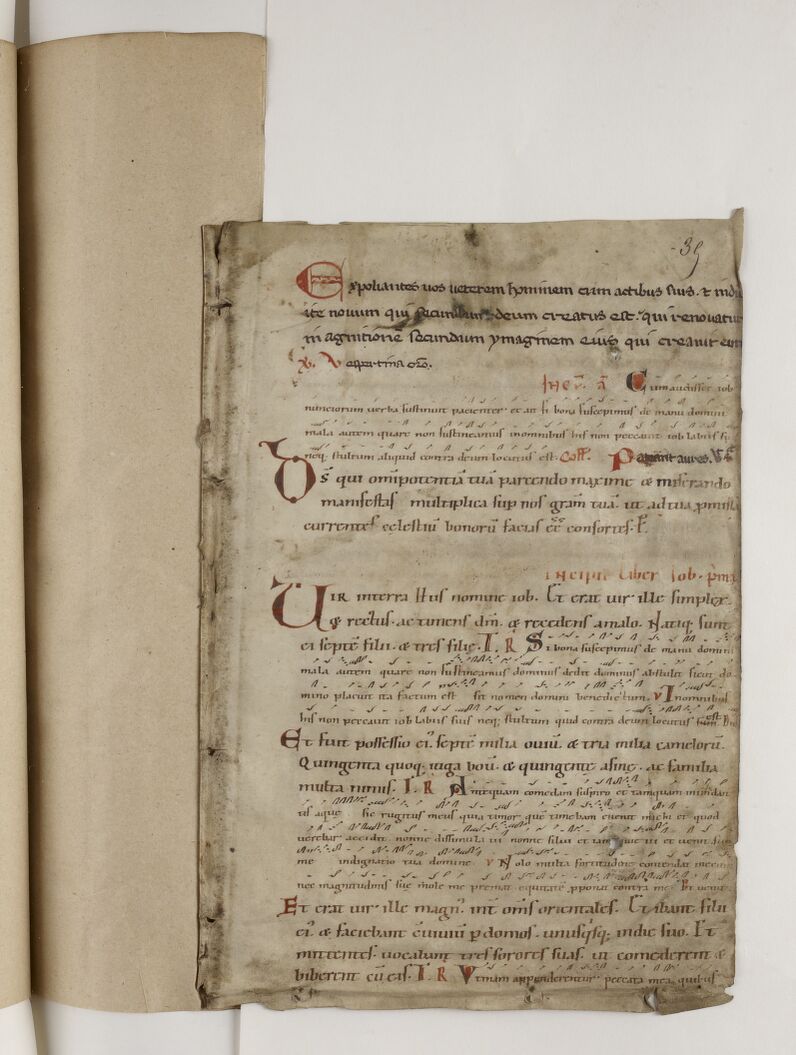 39
Expoliantes uos ueterem hominem cum actibus suis. et indu
ite nouum qui secundum deum creatus est. qui renouatur
in agnitionē secundum ymaginem eius qui creauit eum
V. Vespertina orō.
IN EV. A Cum audisset iob
nunciorum uerba sustinuit pacienter et ait si bona suscepimus de manu domini
mala autem quare non sustineamus in omnibus his non peccauit iob labiis su
neq; stultum aliquid contra deum locutus est. Coll. Pateant aures.
Ds qui omīpotentiā tuā parcendo maxime & miserando
manifestas multiplica sup nos grām tuā. ut ad tua pmissa
currentes celestiū bonorū facias eē consortes. P.
Incipit liber Iob. pma
VIR in terra Hus nomine iob. Et erat uir ille simplex
& rectus. ac timens dm̄. & recedens a malo. Natiq; sunt
ei septē filii. & tres filie. T. R Si bona suscepimus de manu domini
mala autem quare non sustineamus dominus dedit dominus abstulit sicut do
mino placuit ita factum est sit nomen domini benedictum. V In omnibus
his non peccauit iob labiis suis neq; stultum quid contra deum locutus est
Et fuit possessio ei'. septē milia ouiū. & tria milia camelorū.
Quingenta quoq; iuga boū. & quingente asine. ac familia
multa nimis. T. R Antequam comedam suspiro et tamquam inundan
tis aque sic rugitus meus quia timor que timebam euenit michi et quod
uerebar accidit. nonne dissimulaui nonne silui et iam quieui et uenit sup
me indignatio tua domine. V Nolo multa fortitudine contendat mecum
nec magnitudinis sue mole me premat equitatē pponat contra me. Et uenit
Et erat uir ille magn' int om̄s orientales. Et ibant filii
ei'. & faciebant cūiuiū p domos. unusq'sq; in die suo. Et
mittentes. uocabant tres sorores suas. ut comederent &
biberent cū eis. T. R Vtinam appenderentur peccata mea quibus